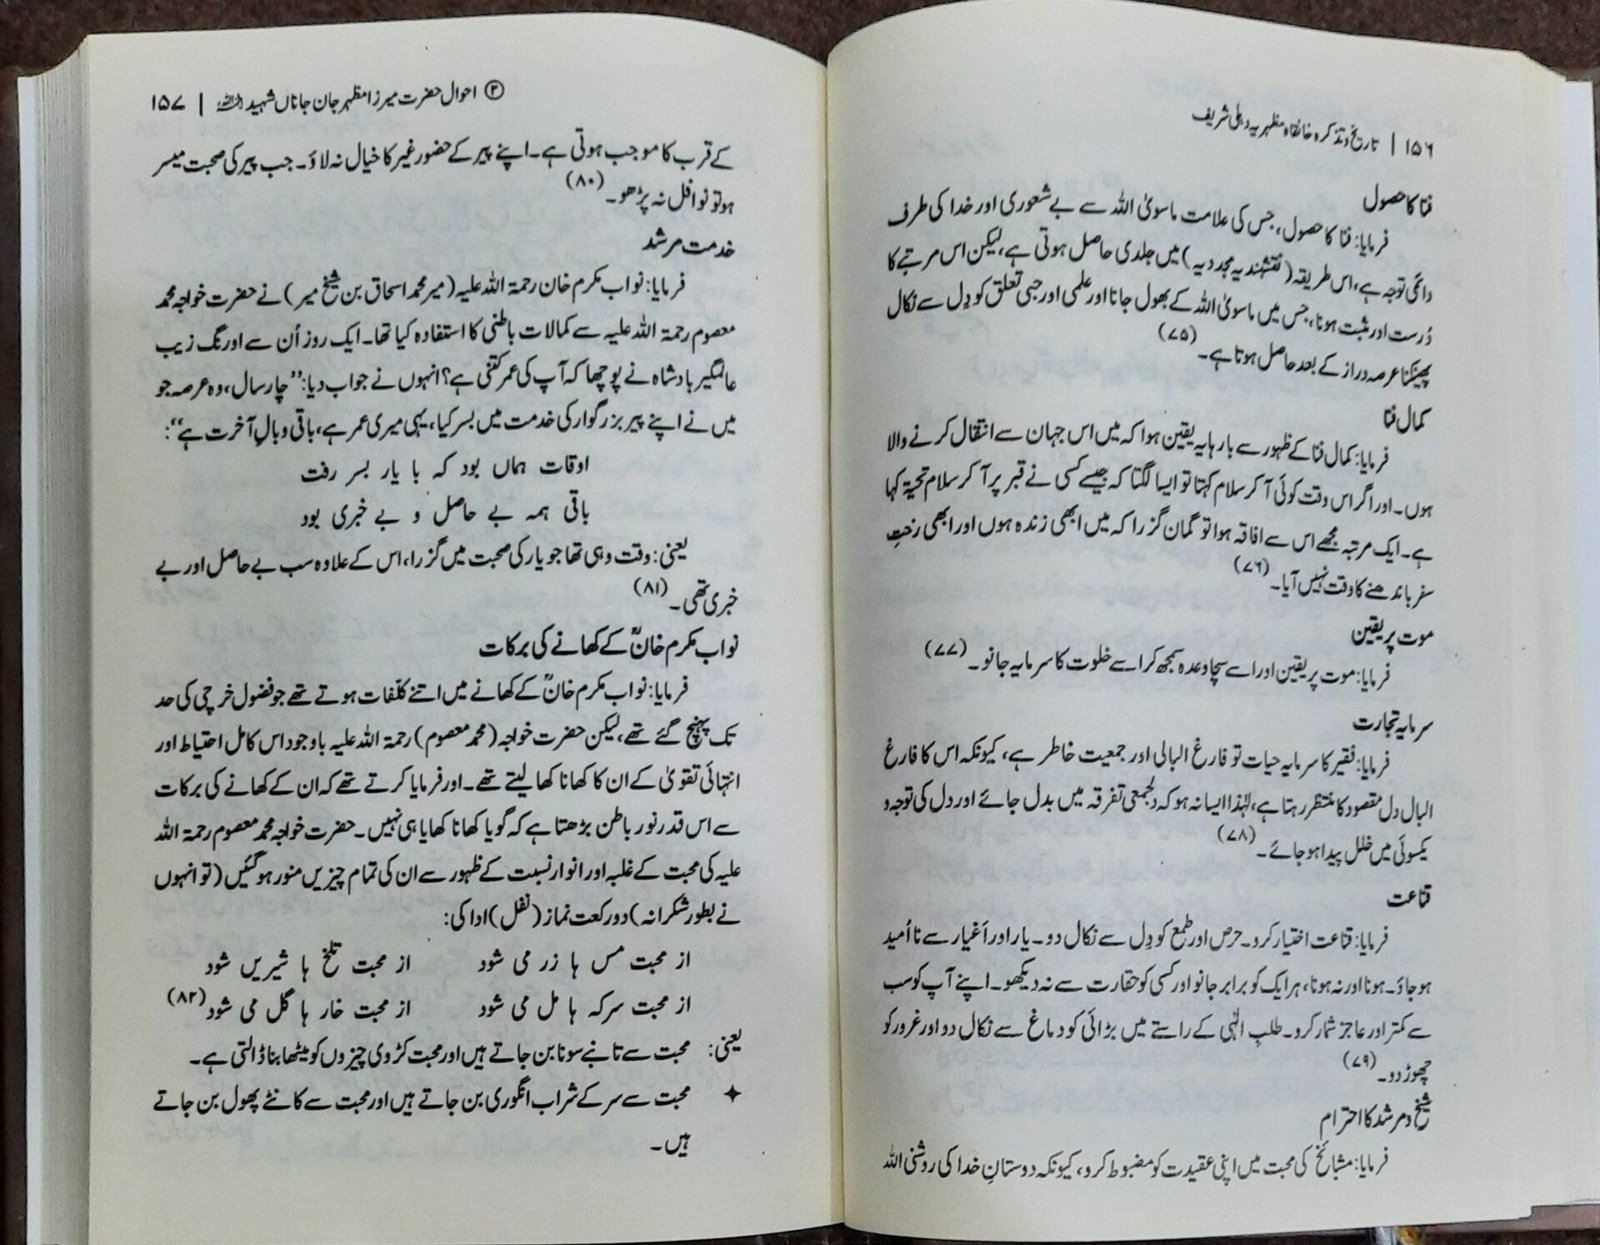 ۱۵۶ | تاریخ و تذکرہ خانقاہ مظہریہ دہلی شریف
فنا کا حصول
فرمایا: فنا کا حصول، جس کی علامت ماسویٰ اللہ سے بے شعوری اور خدا کی طرف
دائمی توجہ ہے، اس طریقہ (نقشبندیہ مجددیہ) میں جلدی حاصل ہوتی ہے، لیکن اس مرتبے کا
دُرست اور مثبت ہونا، جس میں ماسویٰ اللہ کے بھول جانا اور علمی اور حبی تعلق کو دِل سے نکال
پھینکنا عرصہ دراز کے بعد حاصل ہوتا ہے۔ (۷۵)
کمال فنا
فرمایا: کمال فنا کے ظہور سے بارہا یہ یقین ہوا کہ میں اس جہان سے انتقال کرنے والا
ہوں۔ اور اگر اس وقت کوئی آ کر سلام کہتا تو ایسا لگتا کہ جیسے کسی نے قبر پر آ کر سلام تحیۃ کہا
ہے۔ ایک مرتبہ مجھے اس سے افاقہ ہوا تو گمان گزرا کہ میں ابھی زندہ ہوں اور ابھی رختِ
سفر باندھنے کا وقت نہیں آیا۔ (۷۶)
موت پر یقین
فرمایا: موت پر یقین اور اسے سچا وعدہ سمجھ کر اسے خلوت کا سرمایہ جانو۔ (۷۷)
سرمایہ تجارت
فرمایا: فقیر کا سرمایہ حیات تو فارغ البالی اور جمعیت خاطر ہے، کیونکہ اس کا فارغ
البال دل مقصود کا منتظر رہتا ہے، لہٰذا ایسا نہ ہو کہ دلجمعی تفرقہ میں بدل جائے اور دل کی توجہ و
یکسوئی میں خلل پیدا ہو جائے۔ (۷۸)
قناعت
فرمایا: قناعت اختیار کرو۔ حرص اور طمع کو دِل سے نکال دو۔ یار اور اَغیار سے نااُمید
ہو جاؤ۔ ہونا اور نہ ہونا، ہر ایک کو برابر جانو اور کسی کو حقارت سے نہ دیکھو۔ اپنے آپ کو سب
سے کمتر اور عاجز شمار کرو۔ طلبِ الٰہی کے راستے میں بڑائی کو دماغ سے نکال دو اور غرور کو
چھوڑ دو۔ (۷۹)
شیخ و مرشد کا احترام
فرمایا: مشائخ کی محبت میں اپنی عقیدت کو مضبوط کرو، کیونکہ دوستانِ خدا کی روشنی اللہ
③ احوال حضرت میرزا مظہر جان جاناں شہید | ۱۵۷
کے قرب کا موجب ہوتی ہے۔ اپنے پیر کے حضور غیر کا خیال نہ لاؤ۔ جب پیر کی صحبت میسر
ہو تو نوافل نہ پڑھو۔ (۸۰)
خدمت مرشد
فرمایا: نواب مکرم خان رحمۃ اللہ علیہ (میر محمد اسحاق بن شیخ میر) نے حضرت خواجہ محمد
معصوم رحمۃ اللہ علیہ سے کمالات باطنی کا استفادہ کیا تھا۔ ایک روز اُن سے اورنگ زیب
عالمگیر بادشاہ نے پوچھا کہ آپ کی عمر کتنی ہے؟ انہوں نے جواب دیا: ”چار سال، وہ عرصہ جو
میں نے اپنے پیر بزرگوار کی خدمت میں بسر کیا، یہی میری عمر ہے، باقی وبالِ آخرت ہے“:
اوقات ہماں بود کہ با یار بسر رفت
باقی ہمہ بے حاصل و بے خبری بود
یعنی: وقت وہی تھا جو یار کی صحبت میں گزرا، اس کے علاوہ سب بے حاصل اور بے
خبری تھی۔ (۸۱)
نواب مکرم خانؒ کے کھانے کی برکات
فرمایا: نواب مکرم خانؒ کے کھانے میں اتنے تکلّفات ہوتے تھے جو فضول خرچی کی حد
تک پہنچ گئے تھے، لیکن حضرت خواجہ (محمد معصوم) رحمۃ اللہ علیہ باوجود اس کامل احتیاط اور
انتہائی تقویٰ کے ان کا کھانا کھا لیتے تھے۔ اور فرمایا کرتے تھے کہ ان کے کھانے کی برکات
سے اس قدر نور باطن بڑھتا ہے کہ گویا کھانا کھایا ہی نہیں۔ حضرت خواجہ محمد معصوم رحمۃ اللہ
علیہ کی محبت کے غلبہ اور انوار نسبت کے ظہور سے ان کی تمام چیزیں منور ہو گئیں (تو انہوں
نے بطور شکرانہ) دو رکعت نماز (نفل) ادا کی:
از محبت مس ہا زر می شود از محبت تلخ ہا شیریں شود
از محبت سرکہ ہا مل می شود از محبت خار ہا گل می شود (۸۲)
یعنی: محبت سے تانبے سونا بن جاتے ہیں اور محبت کڑوی چیزوں کو میٹھا بنا ڈالتی ہے۔
✦ محبت سے سرکے شراب انگوری بن جاتے ہیں اور محبت سے کانٹے پھول بن جاتے
ہیں۔